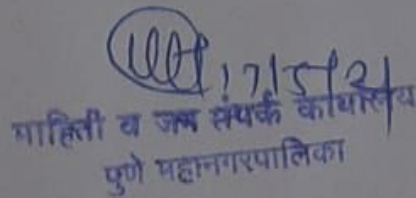 17/5/21
माहिती व जन संपर्क कार्यालय
पुणे महानगरपालिका